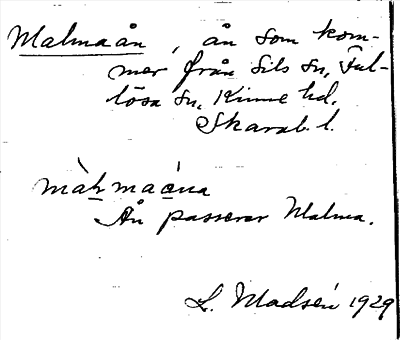 Malmaån, ån som kom-
mer från Sils sn, Ful-
lösa sn, Kinne hd,
Skarab. l.
màḻmaå̱na
Ån passerar Malma.
L. Madsén 1929